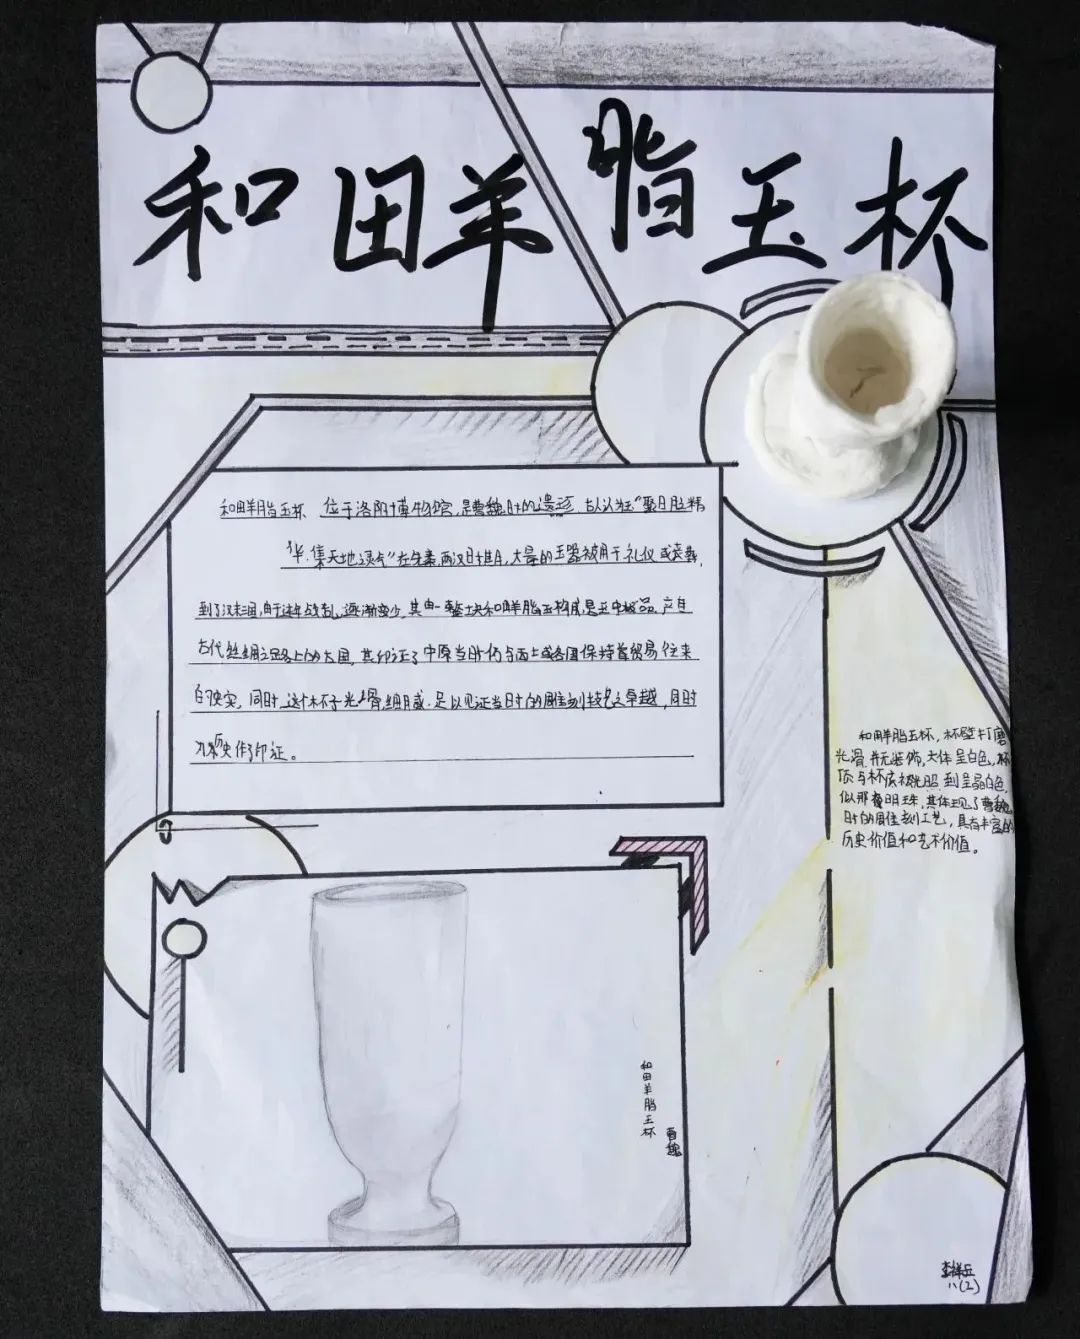 和田羊脂玉杯
和田羊脂玉杯 位于洛阳博物馆,是曹魏时的遗珍,古人认为玉"聚日月精
华,集天地灵气"在先秦两汉时期,大量的玉器被用于礼仪或丧葬,
到了汉末,由于连年战乱,逐渐变少,其由一整块和田羊脂玉构成,是玉中极品,产自
古代丝绸之路上的大国,其印证了中原当时仍与西土域各国保持着贸易往来
的史实,同时,这个杯子光滑,细腻,足以见证当时的雕刻技艺之卓越,同时
为历史作了印证。
和田羊脂玉杯,杯壁打磨
光滑,并无装饰,大体呈白色,杯
顶与杯底被光照到呈晶白色,
似那盏明珠,其体现了曹魏
时的雕刻工艺,具有丰富的
历史价值和艺术价值。
和田羊脂玉杯
曹魏
八(2)